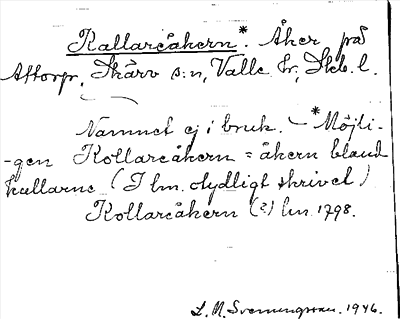 Kallaråkern*. Åker på
Attorpr, Skärv s:n, Valle hr, Skb. l.
Namnet ej i bruk. – *Möjli-
-gen Kollaråkern = åkern bland
kullarne (I lm. otydligt skrivet)
Kollaråkern (?) lm. 1798.
1946.